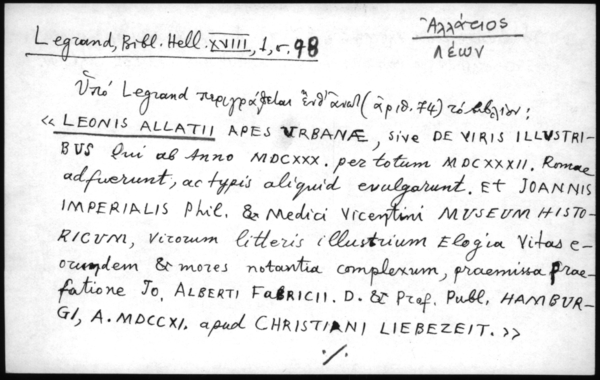 Legrand, Bibl. Hell. XVIII, 1, σ. 98
Ἀλλάτιος
Λέων
Ὑπὸ Legrand περιγράφεται ἐνθ' ἀνωτ. (ἀριθ. 74) τὸ βιβλίον:
« LEONIS ALLATII APES URBANÆ, sive DE VIRIS ILLUSTRI-
BUS qui ab Anno MDCXXX. per totum MDCXXXII. Romae
adfuerunt, ac typis aliquid evulgarunt. Et JOANNIS
IMPERIALIS Phil. & Medici Vicentini MUSEUM HISTO-
RICUM, virorum litteris illustrium Elogia vitas e-
orumdem & mores notantia complexum, praemissa Prae-
fatione Jo. ALBERTI FABRICII. D. & Prof. Publ. HAMBUR-
GI, A. MDCCXI. apud CHRISTIANI LIEBEZEIT. »
./.